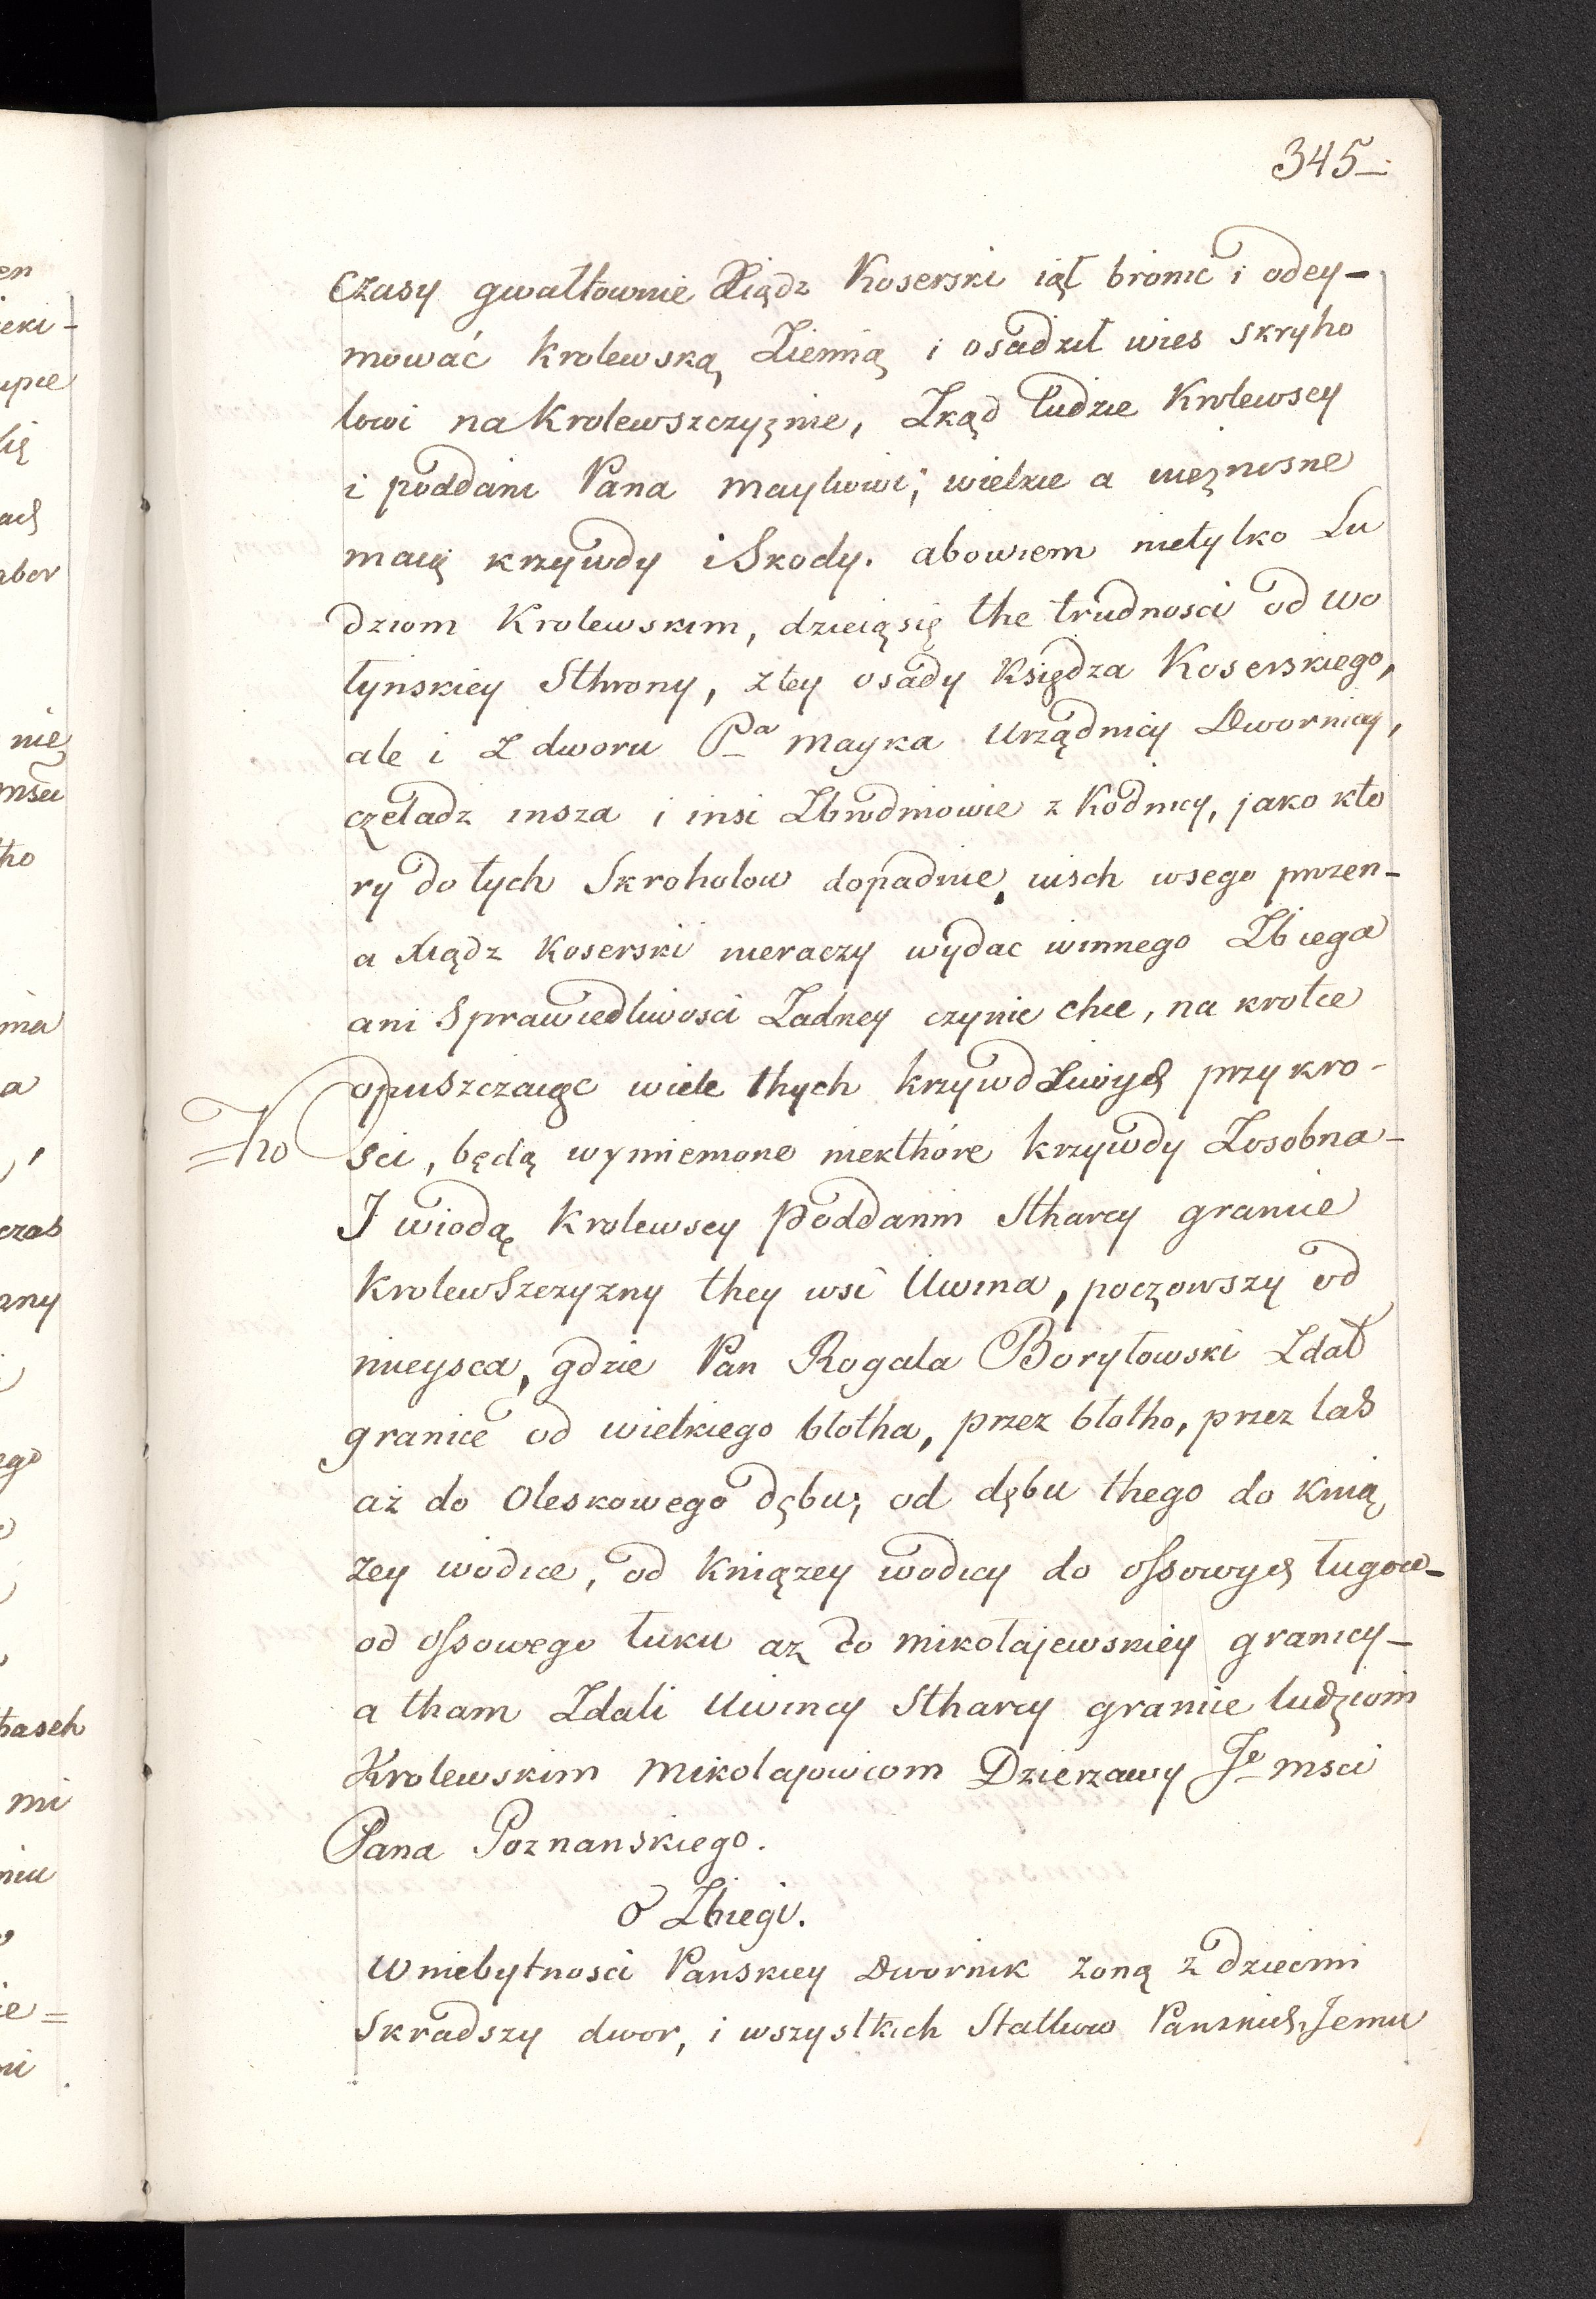 345
czasy gwałtownie Xiądz Koserski iął bronic i odey-
mować krolewską Ziemią i osadził wies skryho
lowi na krolewszczyznie, Zkąd ludzie Krolewscy
i poddani Pana maykowi, wielkie a nieznosne
maią krzywdy i Skody. abowiem nietylko Lu
dziom Krolewskim, dzieią się the trudnosci od wo
łynskiey Sthrony, z tey osady Księdza Koserskiego,
ale i z dworu Pa mayka Urządnicy Dwornicy,
czeladz insza i insi Zbrodniowie z Kodnicy, jako kto
ry do tych Skroholow dopadnie, uisch wsego przen-
a Xiądz Koserski nieraczy wydac winnego Zbiega
ani Sprawiedliwosci Zadney czynic chce, na krotce
opuszczaiąc wiele thych krzywdliwych przykro-
sci, będą wymienione niekthóre krzywdy Zosobna-
I wiodą Krolewscy Poddanni Stharcy granice
krolewszczyzny they wsi Uwina, począwszy od
mieysca, gdzie Pan Rogala Boryłowski Zdał
granice od wielkiego błotha, przez błotho, przez las
aż do Oleskowego dębu; od dębu thego do knią
zey wodce, od kniązey wodicy do ossowych ługow-
od ossowego łuku aż do mikołajewskiey granicy-
a tham Zdali Uwincy Stharcy granice ludziom
Krolewskim Mikolajowcom Dzierzawy Je msci
Pana Poznanskiego.
o Zbiegi.
W niebytnosci Panskiey Dwornik zoną z dziecmi
Skradszy dwor, i wszystkich Statkow Panskich, Jemu